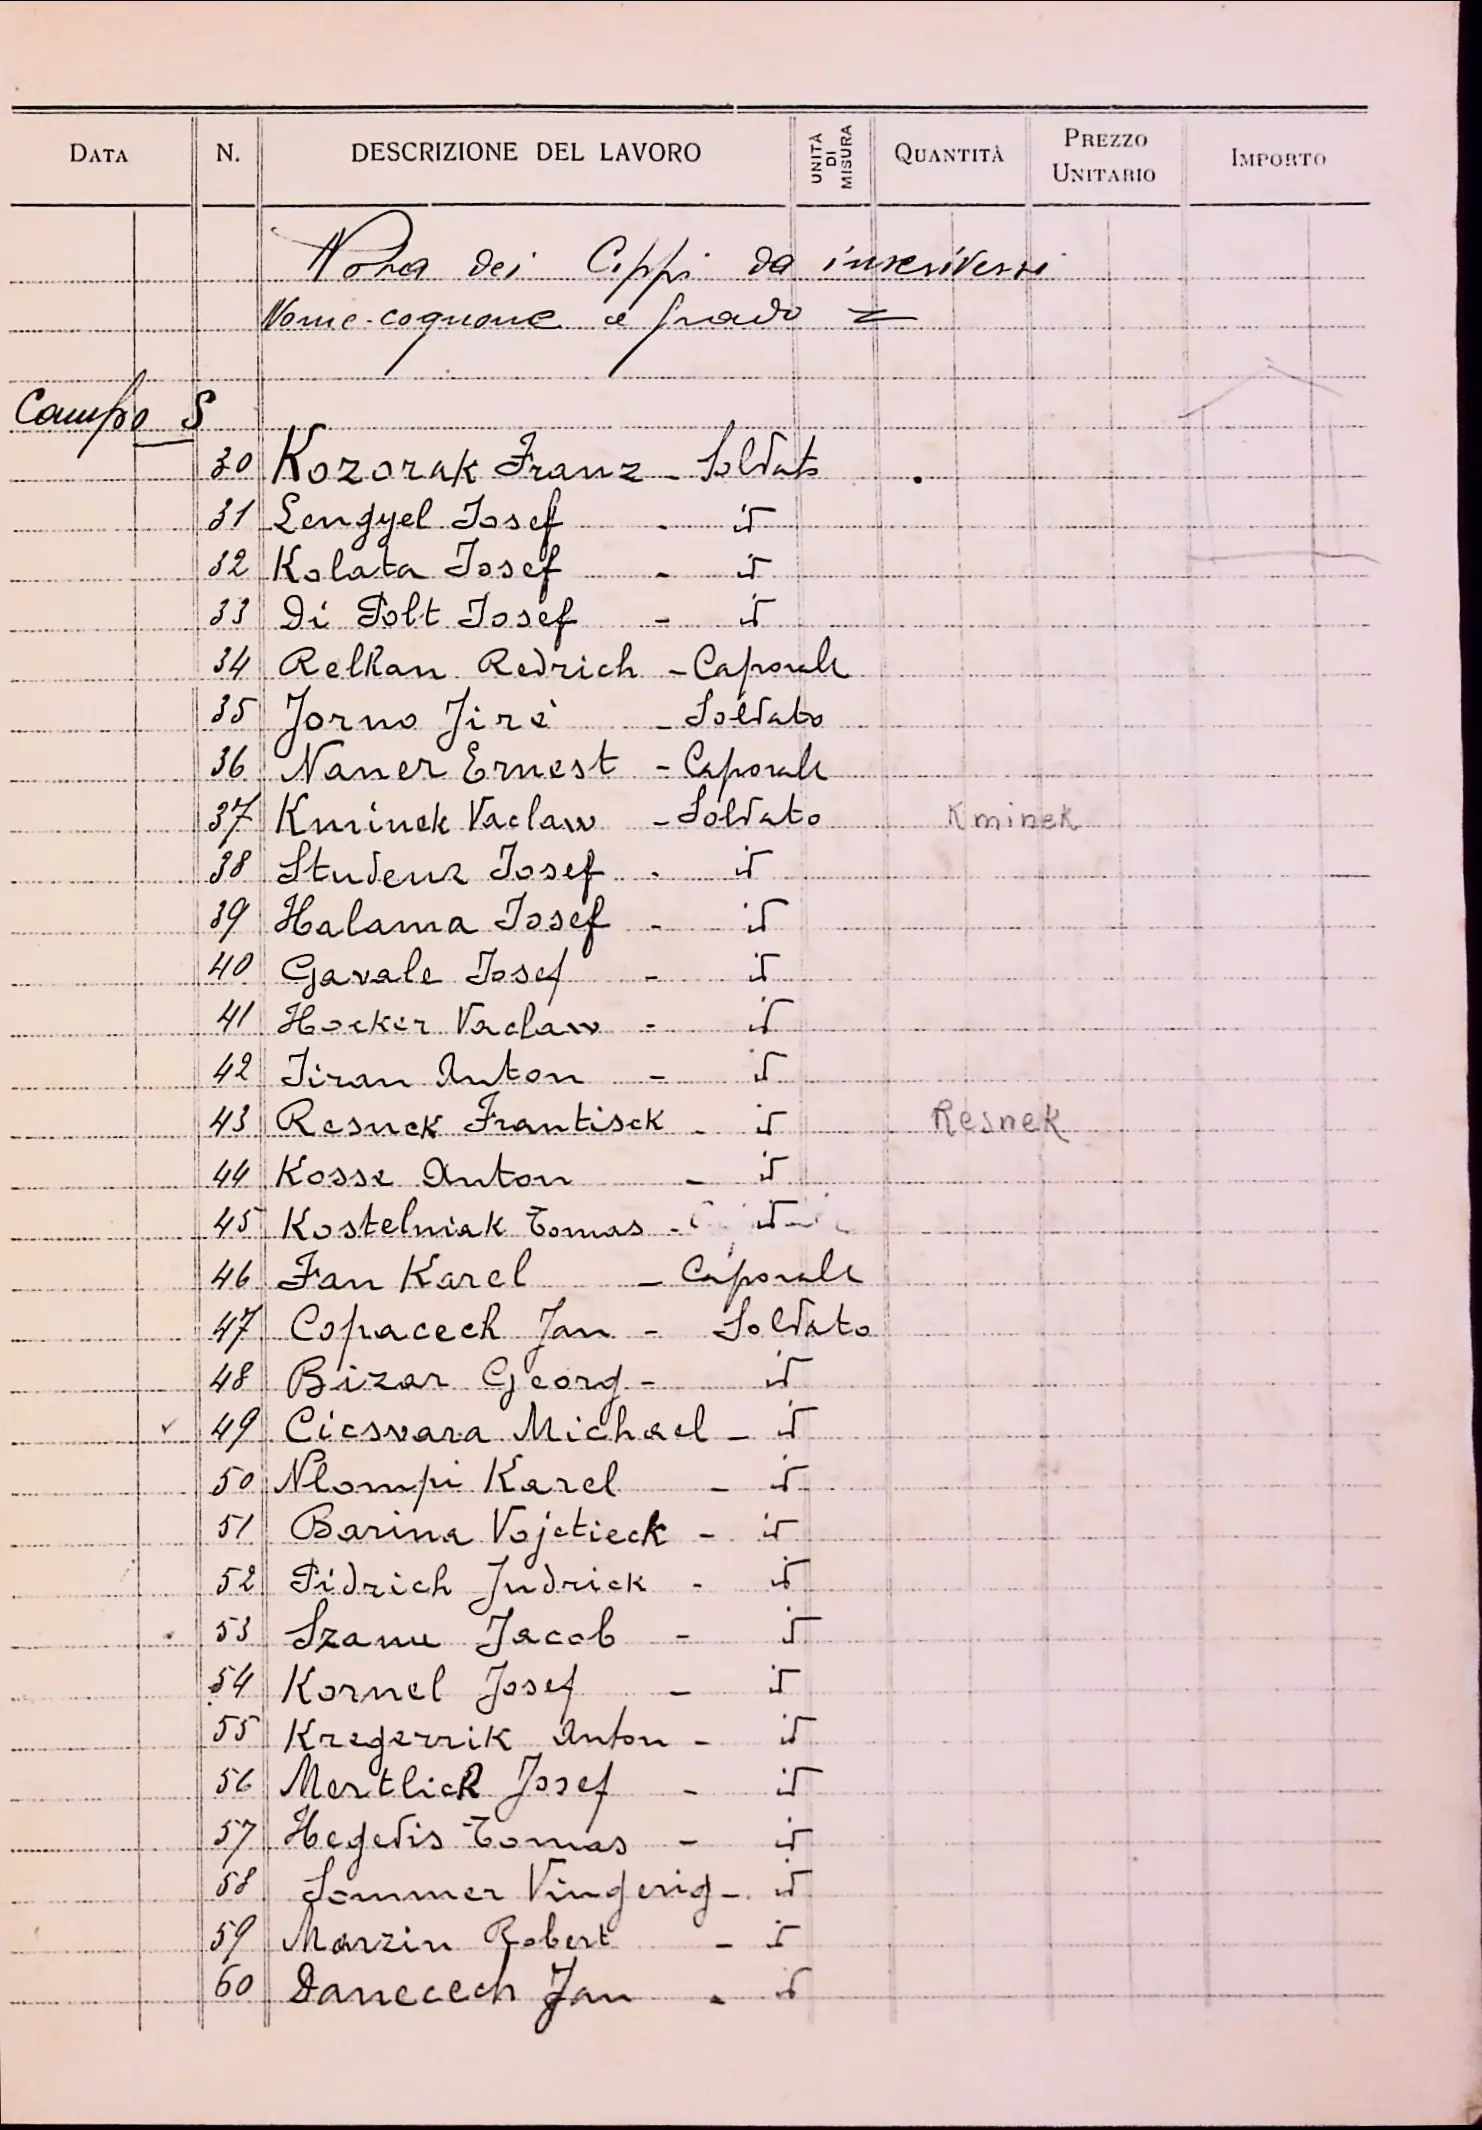 DATA N. DESCRIZIONE DEL LAVORO UNITÀ DI MISURA QUANTITÀ PREZZO UNITARIO IMPORTO
Nota dei Cippi da inscriversi
Nome-cognome e grado =
Campo S
30 Kozorak Franz - Soldato
31 Lengyel Josef - id
32 Kolata Josef - id
33 Di Polt Josef - id
34 Relkan Redrich - Caporale
35 Jorno Jire - Soldato
36 Naner Ernest - Caporale
37 Kminek Vaclaw - Soldato Kminek
38 Studenz Josef - id
39 Halama Josef - id
40 Gavale Josef - id
41 Hocker Vaclaw - id
42 Jiran Anton - id
43 Resnek Frantisek - id Resnek
44 Kosse Anton - id
45 Kostelniak Tomas - id
46 Fan Karel - Caporale
47 Copacech Jan - Soldato
48 Bizar Georg - id
49 Cicsvara Michael - id
50 Nlompi Karel - id
51 Barina Vojctieck - id
52 Pidrich Judrick - id
53 Szanu Jacob - id
54 Kornel Josef - id
55 Kregerrik Anton - id
56 Mertlick Josef - id
57 Hegedis Tomas - id
58 Sommer Vingerig - id
59 Marzin Robert - id
60 Danecech Jan - id